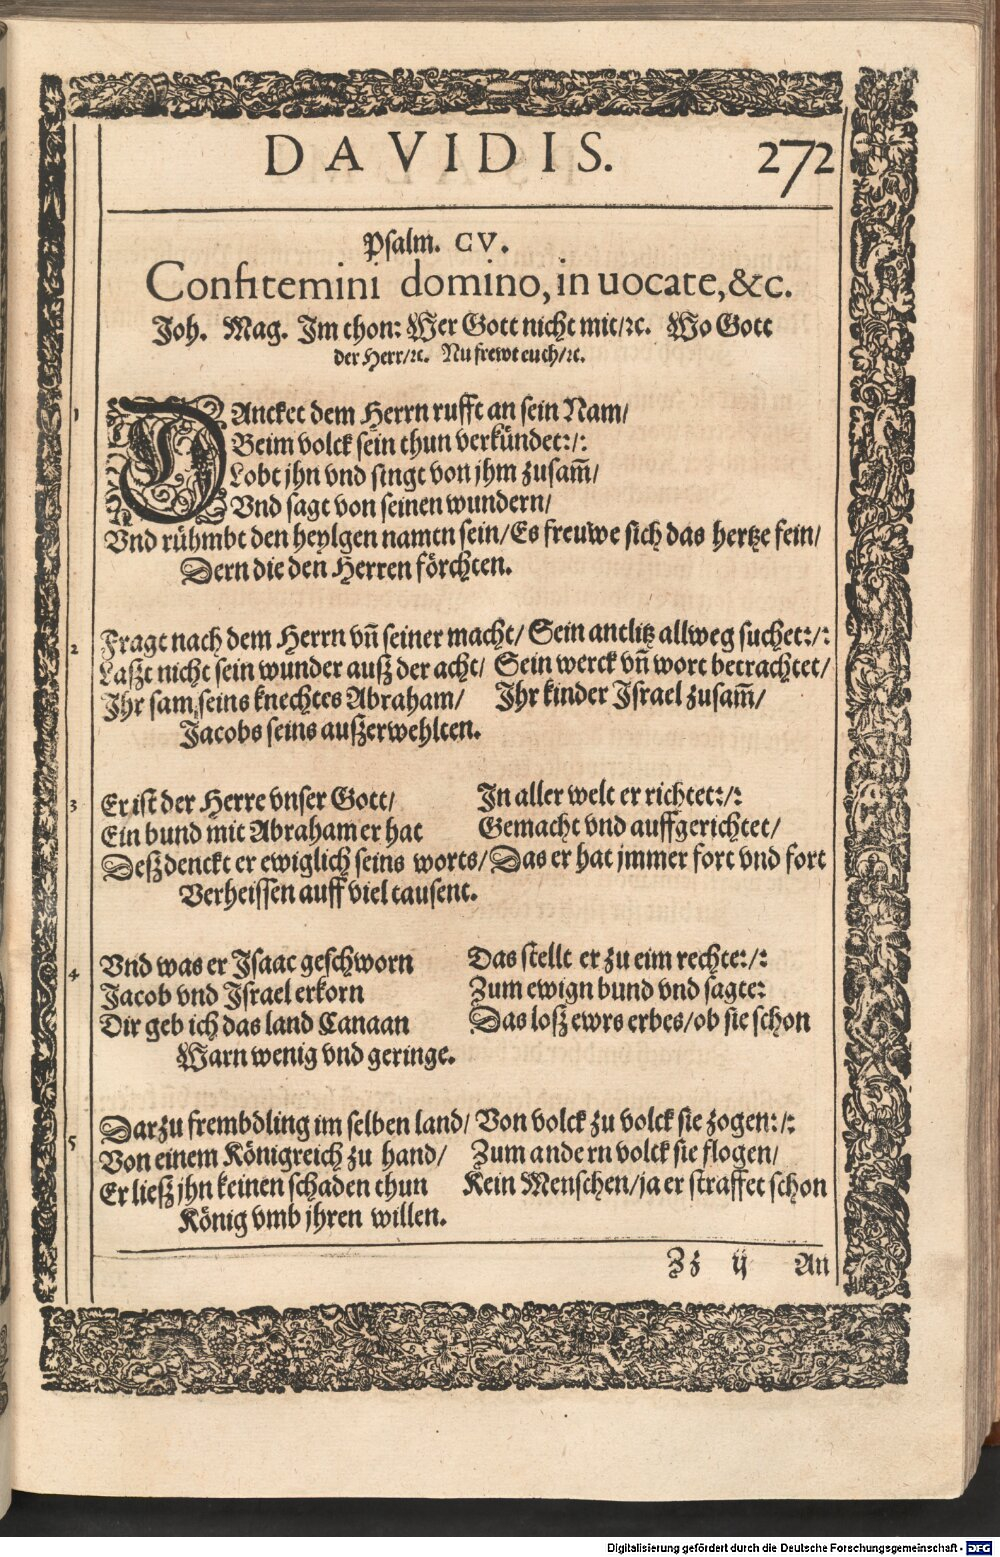 DAVIDIS. 272
Psalm. CV.
Confitemini domino, in uocate, &c.
Joh. Mag. Im thon: Wer Gott nicht mit/ꝛc. Wo Gott
der Herr/ꝛc. Nu frewt euch/ꝛc.
1 DAncket dem Herrn rufft an sein Nam/
Beim volck sein thun verkündet:/:
Lobt jhn vnd singt von jhm zusam̄/
Vnd sagt von seinen wundern/
Vnd rühmbt den heylgen namen sein/ Es freuwe sich das hertze fein/
Dern die den Herren förchten.
2 Fragt nach dem Herrn vn̄ seiner macht/ Sein antlitz allweg suchet:/:
Laßt nicht sein wunder auß der acht/ Sein werck vn̄ wort betrachtet/
Ihr sam, seins knechtes Abraham/ Ihr kinder Israel zusam̄/
Jacobs seins außerwehlten.
3 Er ist der Herre vnser Gott/ In aller welt er richtet:/:
Ein bund mit Abraham er hat Gemacht vnd auffgerichtet/
Deß denckt er ewiglich seins worts/ Das er hat jmmer fort vnd fort
Verheissen auff viel tausent.
4 Vnd was er Isaac geschworn Das stellt er zu eim rechte:/:
Jacob vnd Israel erkorn Zum ewign bund vnd sagte:
Dir geb ich das land Canaan Das loß ewrs erbes/ ob sie schon
Warn wenig vnd geringe.
5 Darzu frembdling im selben land/ Von volck zu volck sie zogen:/:
Von einem Königreich zu hand/ Zum andern volck sie flogen/
Er ließ jhn keinen schaden thun Kein Menschen/ ja er straffet schon
König vmb jhren willen.
Zz ij An
Digitalisierung gefördert durch die Deutsche Forschungsgemeinschaft - DFG